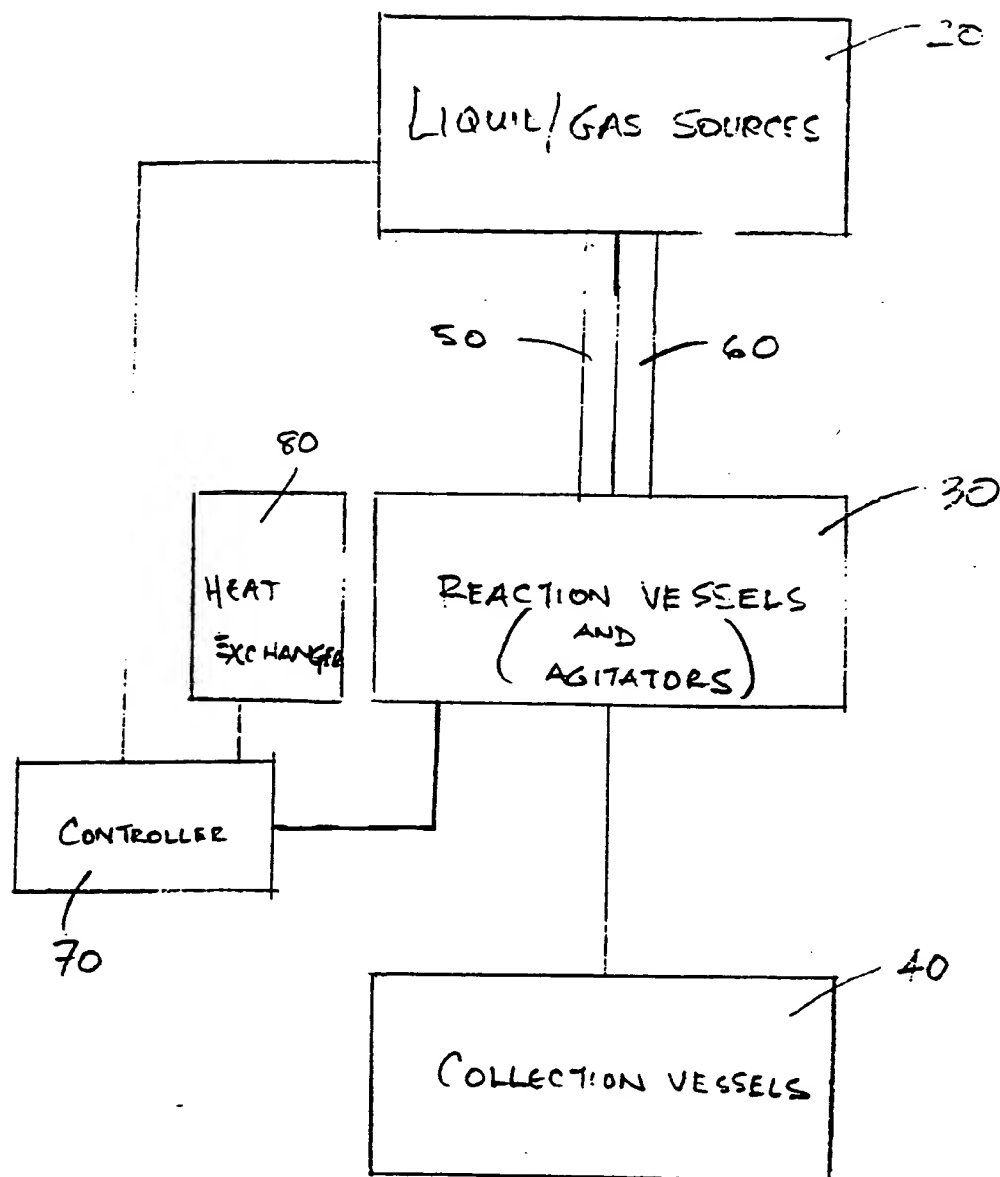 20
LIQUID/GAS SOURCES
50
60
80
30
HEAT
EXCHANGER
REACTION VESSELS
(AND
AGITATORS)
CONTROLLER
70
40
COLLECTION VESSELS